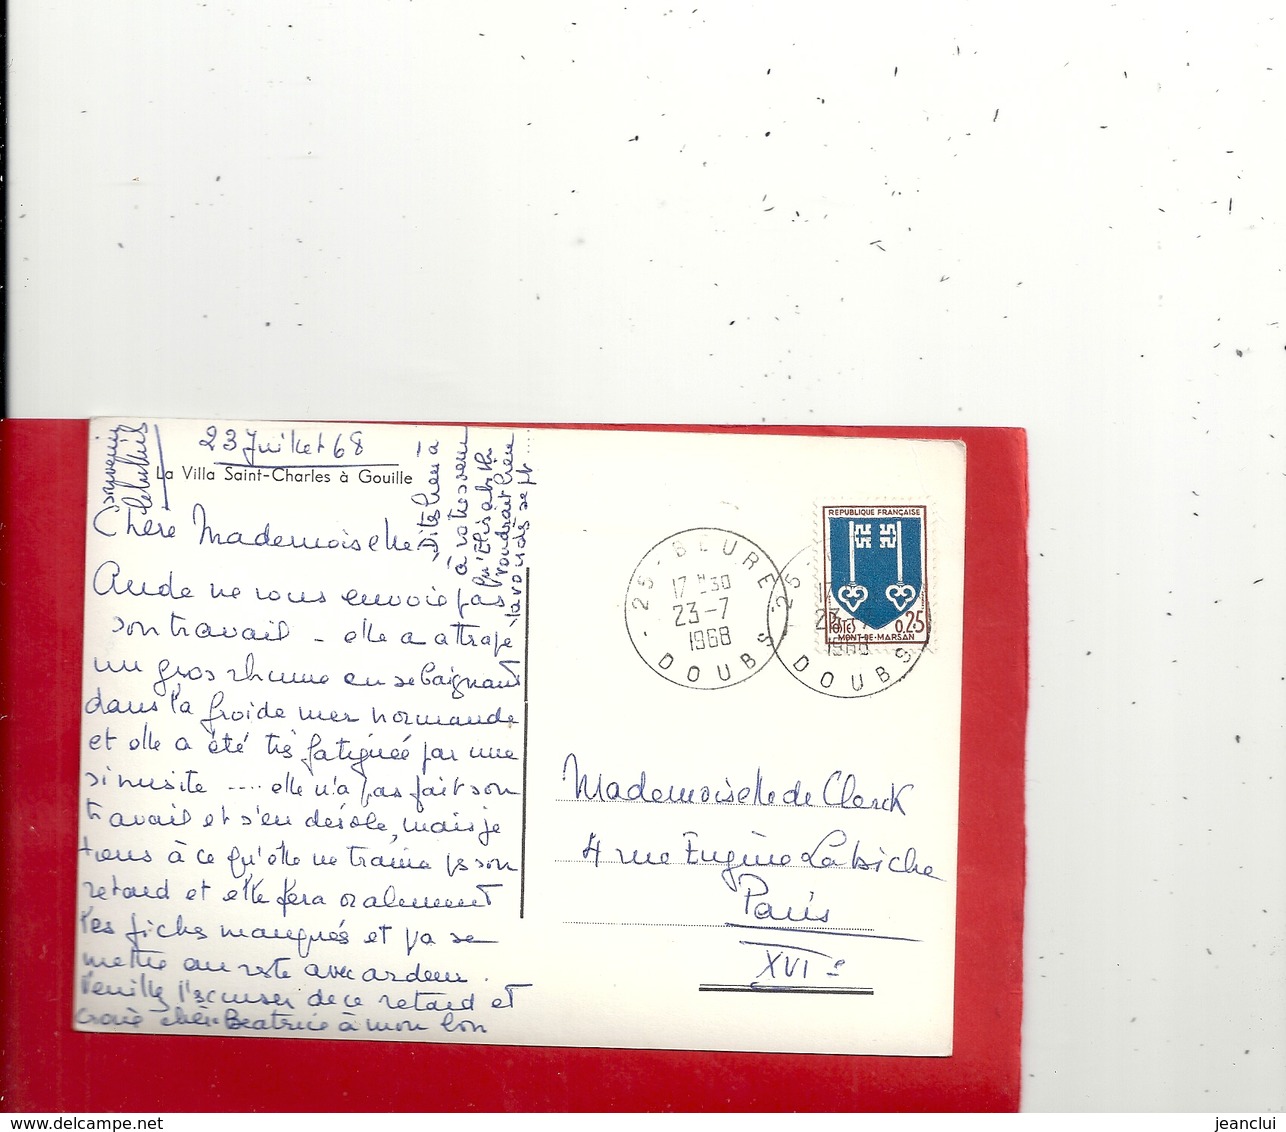 23 Juillet 68
La Villa Saint-Charles à Gouille
Chère Mademoiselle
Aude ne vous envoie pas
son travail - elle a attrapé
un gros rhume en se baignant
dans la froide mer normande
et elle a été très fatiguée par une
sinusite .... elle n'a pas fait son
travail et s'en désole, mais je
tiens à ce qu'elle ne traîne pas son
retard et elle fera oralement
les fiches manqués et va se
mettre au reste avec ardeur.
Veuillez l'excuser de ce retard et
croire chère Beatrice à mon bon
souvenir
Dites bien à
à votre soeur
qu'Elisabeth
voudrait bien
la voir
25 - BEURE
17 H 30
23 - 7
1968
DOUBS
25
17
23 - 7
1968
DOUBS
REPUBLIQUE FRANÇAISE
POSTES 0,25
MONT-DE-MARSAN
Mademoiselle de Clerck
4 rue Eugène Labiche
Paris
XVIe
www.delcampe.net
jeanclui